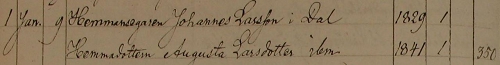 1 Jan. 9 Hemmansegaren Johannes Larsson i Dal 1829 1
Hemmadottern Augusta Larsdotter ibm 1841 1 350